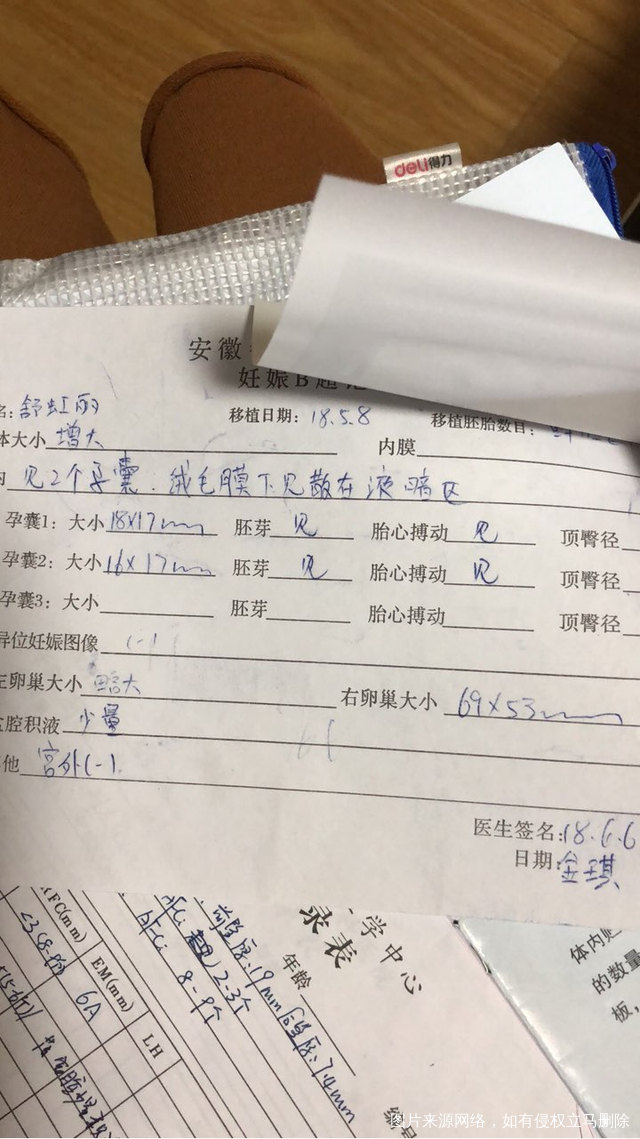 deli得力
安徽
妊娠B超
名:舒虹丽 移植日期: 18.5.8 移植胚胎数目:
体大小 增大 内膜
见2个孕囊.绒毛膜下见散在液暗区
孕囊1: 大小 18X17mm 胚芽 见 胎心搏动 见 顶臀径
孕囊2: 大小 16X17mm 胚芽 见 胎心搏动 见 顶臀径
孕囊3: 大小 胚芽 胎心搏动 顶臀径
异位妊娠图像 (-)
左卵巢大小 增大 右卵巢大小 69X53mm
盆腔积液 少量
他 宫外(-)
医生签名: 18.6.6
日期: 金琪
学中心
录表
年龄
AFC(mm)
EM(mm)
LH
6A
2-3个
8-9个
编号
体内
的数量
板,
图片来源网络，如有侵权立马删除